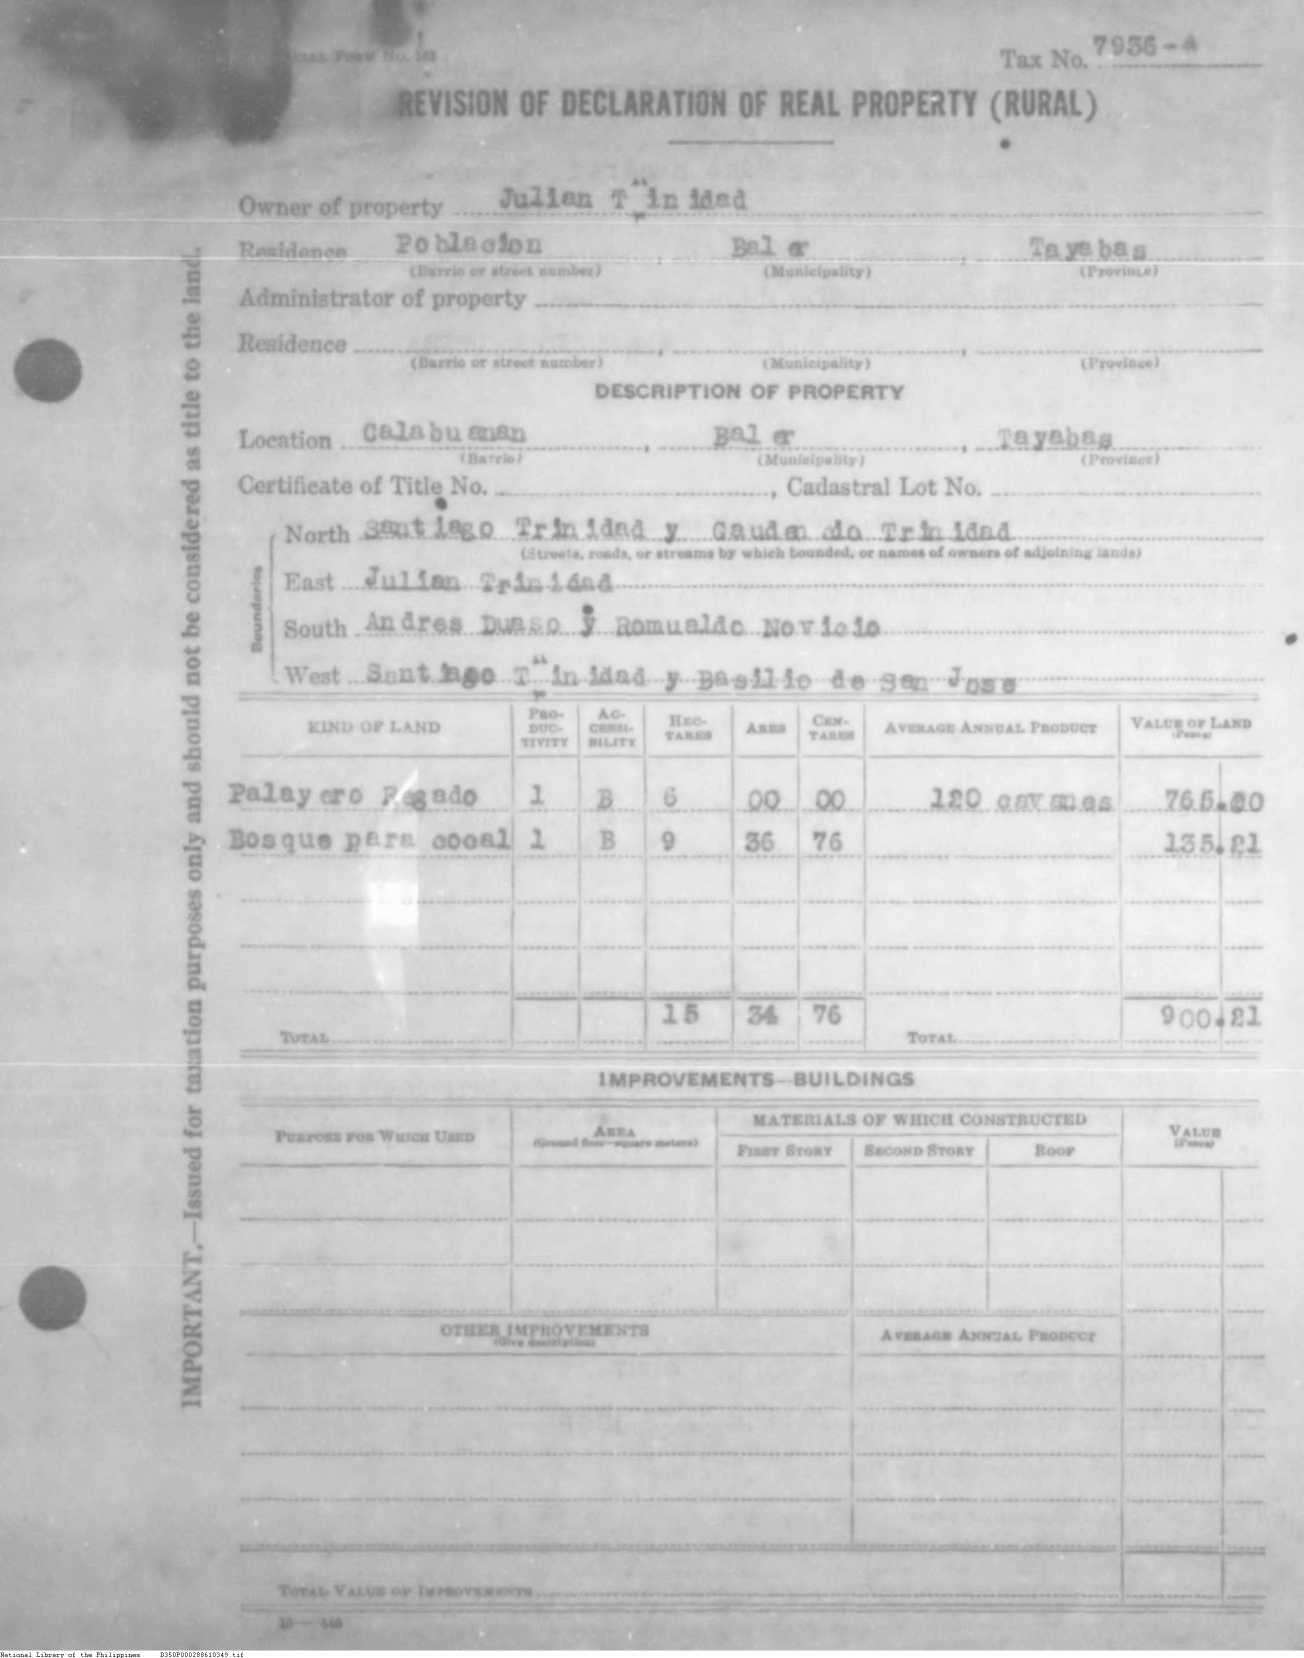 Tax No. 7936-A
REVISION OF DECLARATION OF REAL PROPERTY (RURAL)
Owner of property Julian Trinidad
Residence Poblacion, Baler, Tayabas
(Barrio or street number) (Municipality) (Province)
Administrator of property
Residence
(Barrio or street number) (Municipality) (Province)
DESCRIPTION OF PROPERTY
Location Calabuanan, Baler, Tayabas
(Barrio) (Municipality) (Province)
Certificate of Title No. , Cadastral Lot No.
Boundaries
North Santiago Trinidad y Gaudencio Trinidad
(Streets, roads, or streams by which bounded, or names of owners of adjoining lands)
East Julian Trinidad
South Andres Duaso y Romualdo Novicio
West Santiago Trinidad y Basilio de San Jose
KIND OF LAND PRODUCTIVITY ACCESSIBILITY HECTARES ARES CENTARES AVERAGE ANNUAL PRODUCT VALUE OF LAND (Pesos)
Palayero Regado 1 B 6 00 00 120 cavanes 765.00
Bosque para cocal 1 B 9 36 76 135.21
TOTAL 15 34 76 TOTAL 900.21
IMPROVEMENTS—BUILDINGS
PURPOSE FOR WHICH USED AREA (Ground floor—square meters) MATERIALS OF WHICH CONSTRUCTED VALUE (Pesos)
FIRST STORY SECOND STORY ROOF
OTHER IMPROVEMENTS AVERAGE ANNUAL PRODUCT
(Give description)
TOTAL VALUE OF IMPROVEMENTS
IMPORTANT.—Issued for taxation purposes only and should not be considered as title to the land.
National Library of the Philippines D350P000288610349.tif